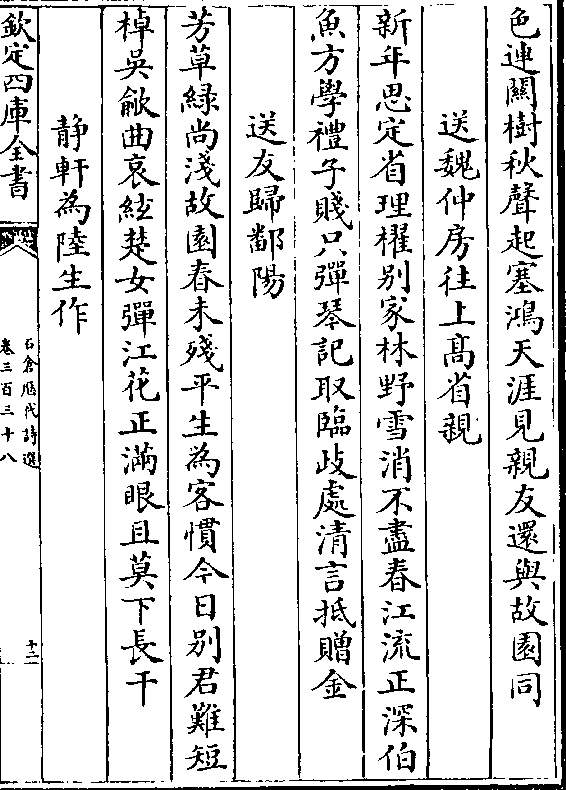 色連闗樹秋聲起塞鴻天涯見親友還與故園同
送魏仲房往上髙省親
新年思定省理櫂别家林野雪消不盡春江流正深伯
魚方學禮子賤只彈琴記取臨歧處清言抵贈金
送友歸鄱陽
芳草緑尚淺故園春未殘平生為客慣今日别君難短
棹吳歈曲哀絃楚女彈江花正滿眼且莫下長干
静軒為陸生作
欽定四庫全書
石倉歴代詩選
卷三百三十八
十二